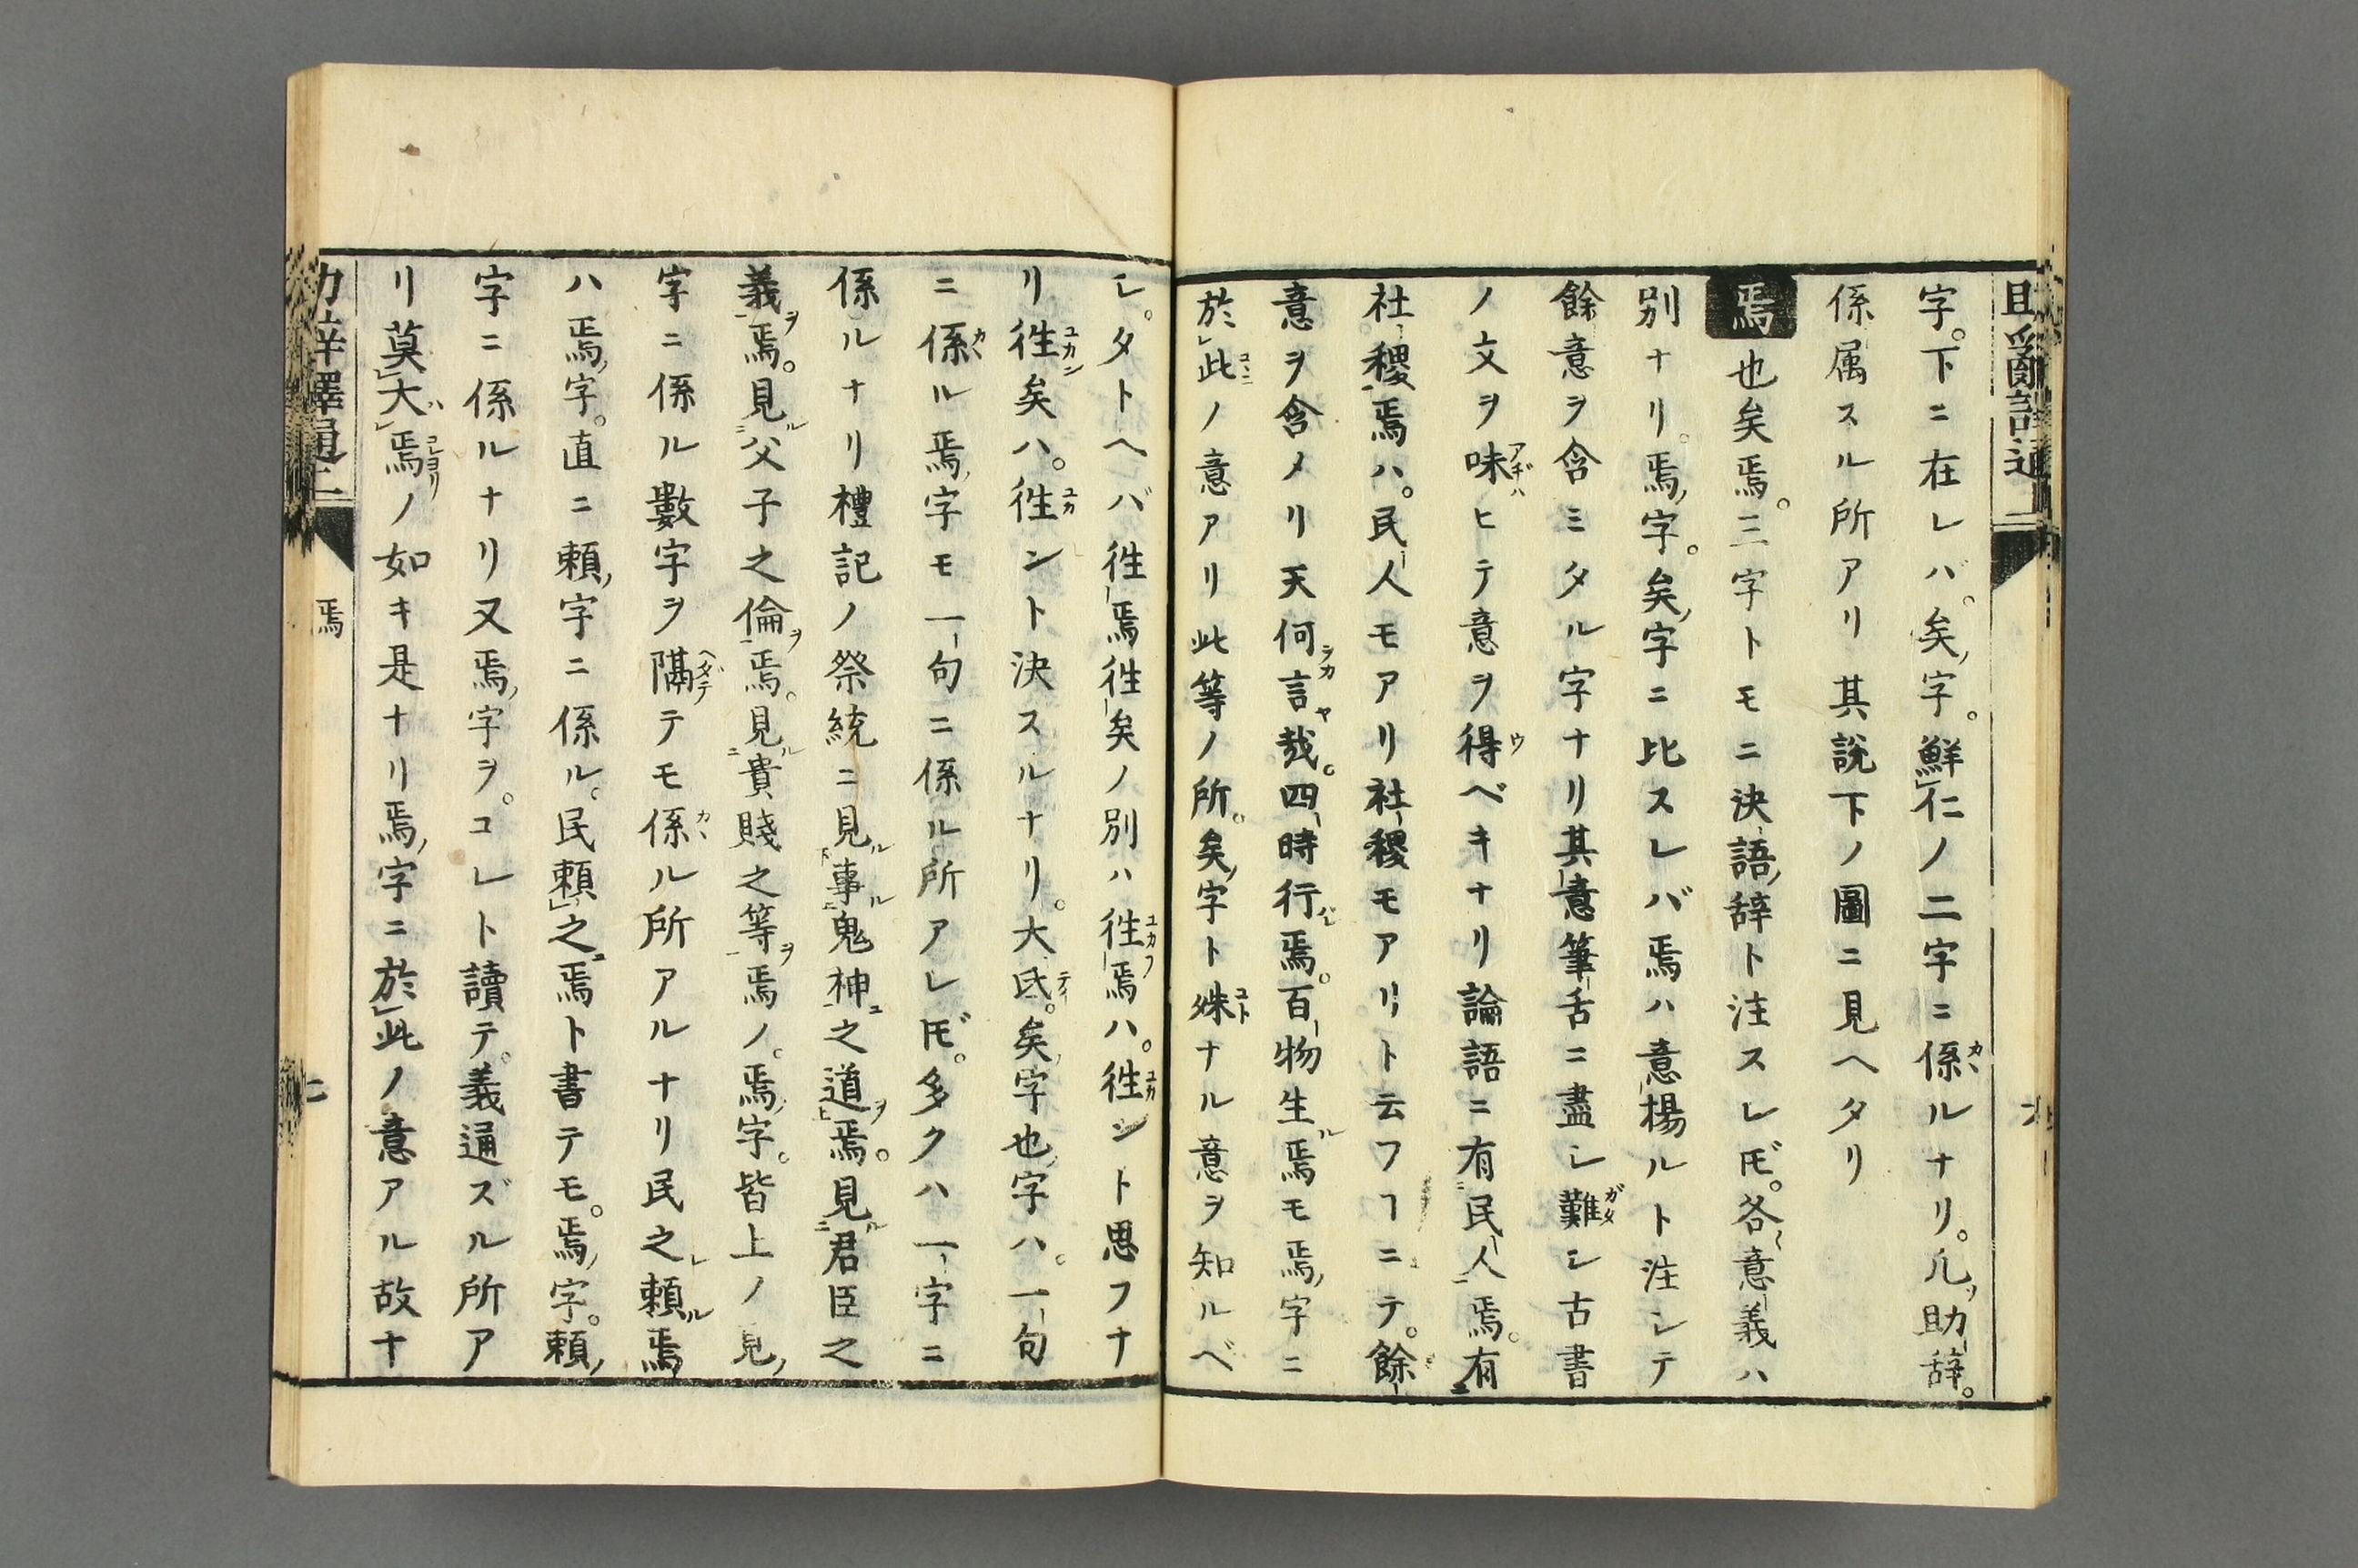 字。下ニ在レバ。矣字。鮮仁ノ二字ニ係ルナリ。凡助辞。
係属スル所アリ其説下ノ圖ニ見ヘタリ
焉 也矣焉。三字トモニ決語辞ト注スレドモ。各意義ハ
別ナリ。焉字。矣字ニ比スレバ焉ハ意楊ルト注シテ
餘意ヲ含ミタル字ナリ其意筆舌ニ盡シ難シ古書
ノ文ヲ味ヒテ意ヲ得ベキナリ論語ニ有民人焉。有
社稷焉ハ。民人モアリ社稷モアリト云フヿニテ。餘
意ヲ含メリ天何言哉。四時行焉。百物生焉モ焉字ニ
於此ノ意アリ此等ノ所。矣字ト殊ナル意ヲ知ルベ
シ。タトヘバ徃焉徃矣ノ別ハ徃焉ハ。徃ント思フナ
リ徃矣ハ。徃ント決スルナリ。大氐。矣字也字ハ。一句
ニ係ル焉字モ一句ニ係ル所アレドモ。多クハ一字ニ
係ルナリ禮記ノ祭統ニ見事鬼神之道焉。見君臣之
義焉。見父子之倫焉。見貴賤之等焉ノ。焉字。皆上ノ見
字ニ係ル數字ヲ隔テモ係ル所アルナリ民之頼焉
ハ焉字。直ニ頼字ニ係ル。民頼之焉ト書テモ。焉字。頼
字ニ係ルナリ又焉字ヲ。コレト讀テ。義通ズル所ア
リ莫大焉ノ如キ是ナリ焉字ニ於此ノ意アル故ナ
焉